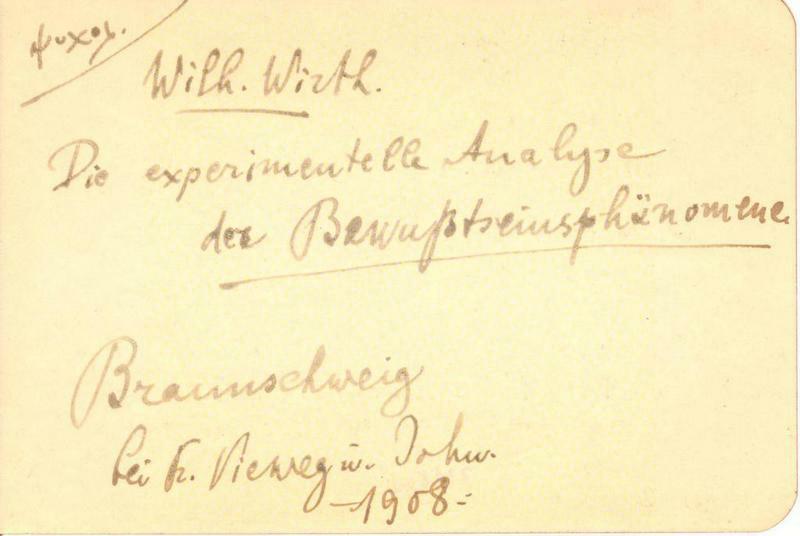 Психол.
Wilh. Wirth.
Die experimentelle Analyse
der Bewußtseinsphänomene.
Braunschweig
bei Fr. Vieweg u. Sohn.
—1908—